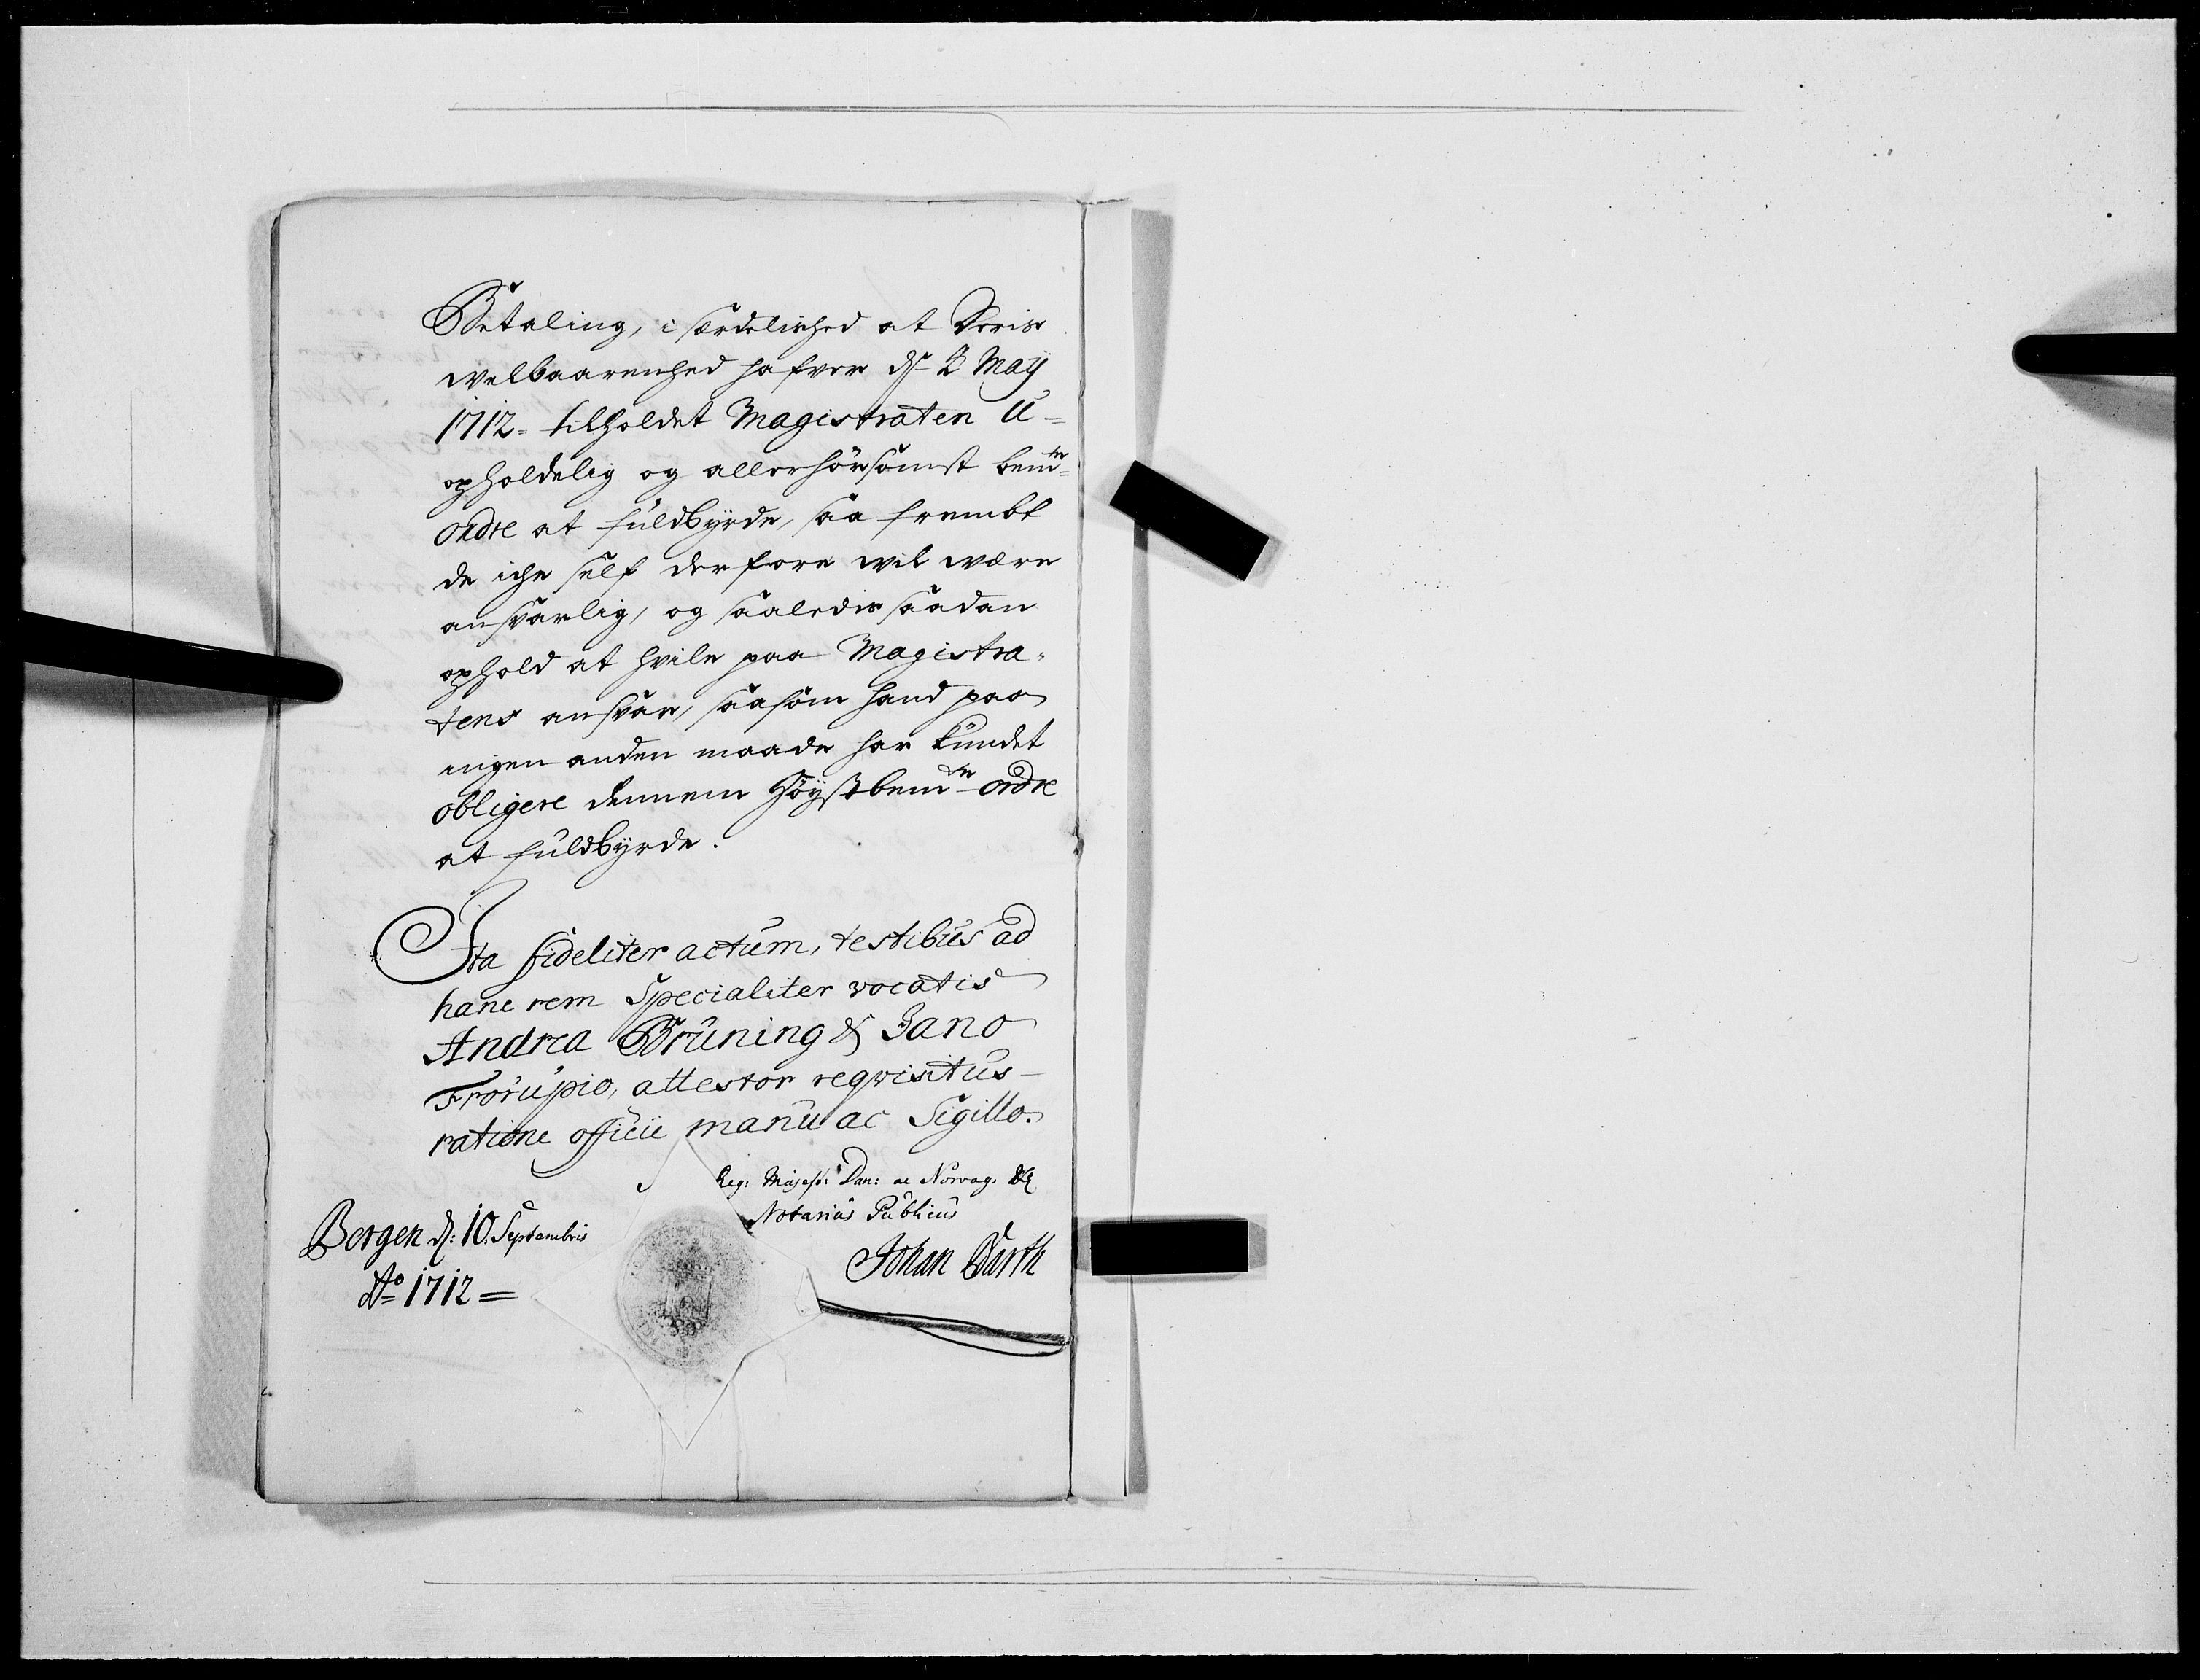 Betaling, i særdelished at Deris
welbaarenhed hafver d. 2 Maÿ
1712 = tilholdet Magistraten U=
opholdelig og allerhörsomst bem.te
Ordre at fuldbÿrde, saa frembt
de iche self derfore wil være
ansvarlig, og saaledis saadan
ophold at hvile paa Magistra=
tens ansvar, saasom hand paa
ingen anden maade har kundet
obligere dennem Höÿstbem.te ordre
at fuldbÿrde.
Ita fideliter actum, testibus ad
hanc rem Specialiter vocatis
Andrea Brüning & Jano
Frorupio, attestor reqvisitus
ratione officii manu ac Sigillo.
Reg: Majest: Dan: ac Norvag. &c
Notarius Publicus
Johan Barth
Bergen d: 10. Septembris
Ao 1712 =